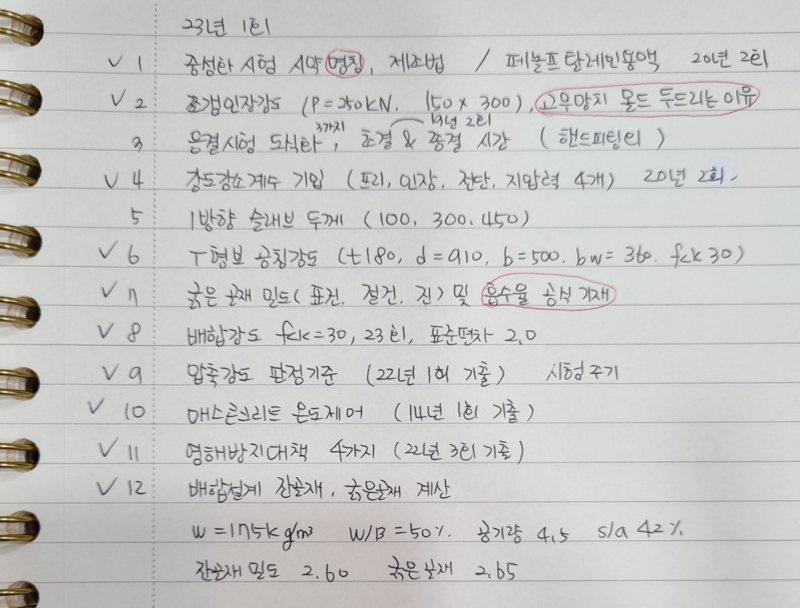 23년 1회
✓ 1 중성화 시험 시약 명칭, 제조법 / 페놀프탈레인용액 20년 2회
✓ 2 쪼갬인장강도 (P=250kN, 150×300), 고무망치 몰드 두드리는 이유
3 응결시험 도식화, 3가지 초결 & 종결 시간 19년 2회 (핸드피팅런)
✓ 4 강도감소계수 기입 (프리, 인장, 전단, 지압력 4개) 20년 2회
5 1방향 슬래브 두께 (100, 300, 450)
✓ 6 T형보 공칭강도 (t180, d=910, b=500, bw=360, fck 30)
✓ 7 굵은골재 밀도(표건, 절건, 진) 및 흡수율 공식 기재
✓ 8 배합강도 fck=30, 23회, 표준편차 2.0
✓ 9 압축강도 판정기준 (22년 1회 기출) 시험주기
✓ 10 매스콘크리트 온도제어 (14년 1회 기출)
✓ 11 염해방지대책 4가지 (22년 3회 기출)
✓ 12 배합설계 잔골재, 굵은골재 계산
W=175kg/m³ W/B=50%. 공기량 4.5 s/a 42%
잔골재 밀도 2.60 굵은골재 2.65